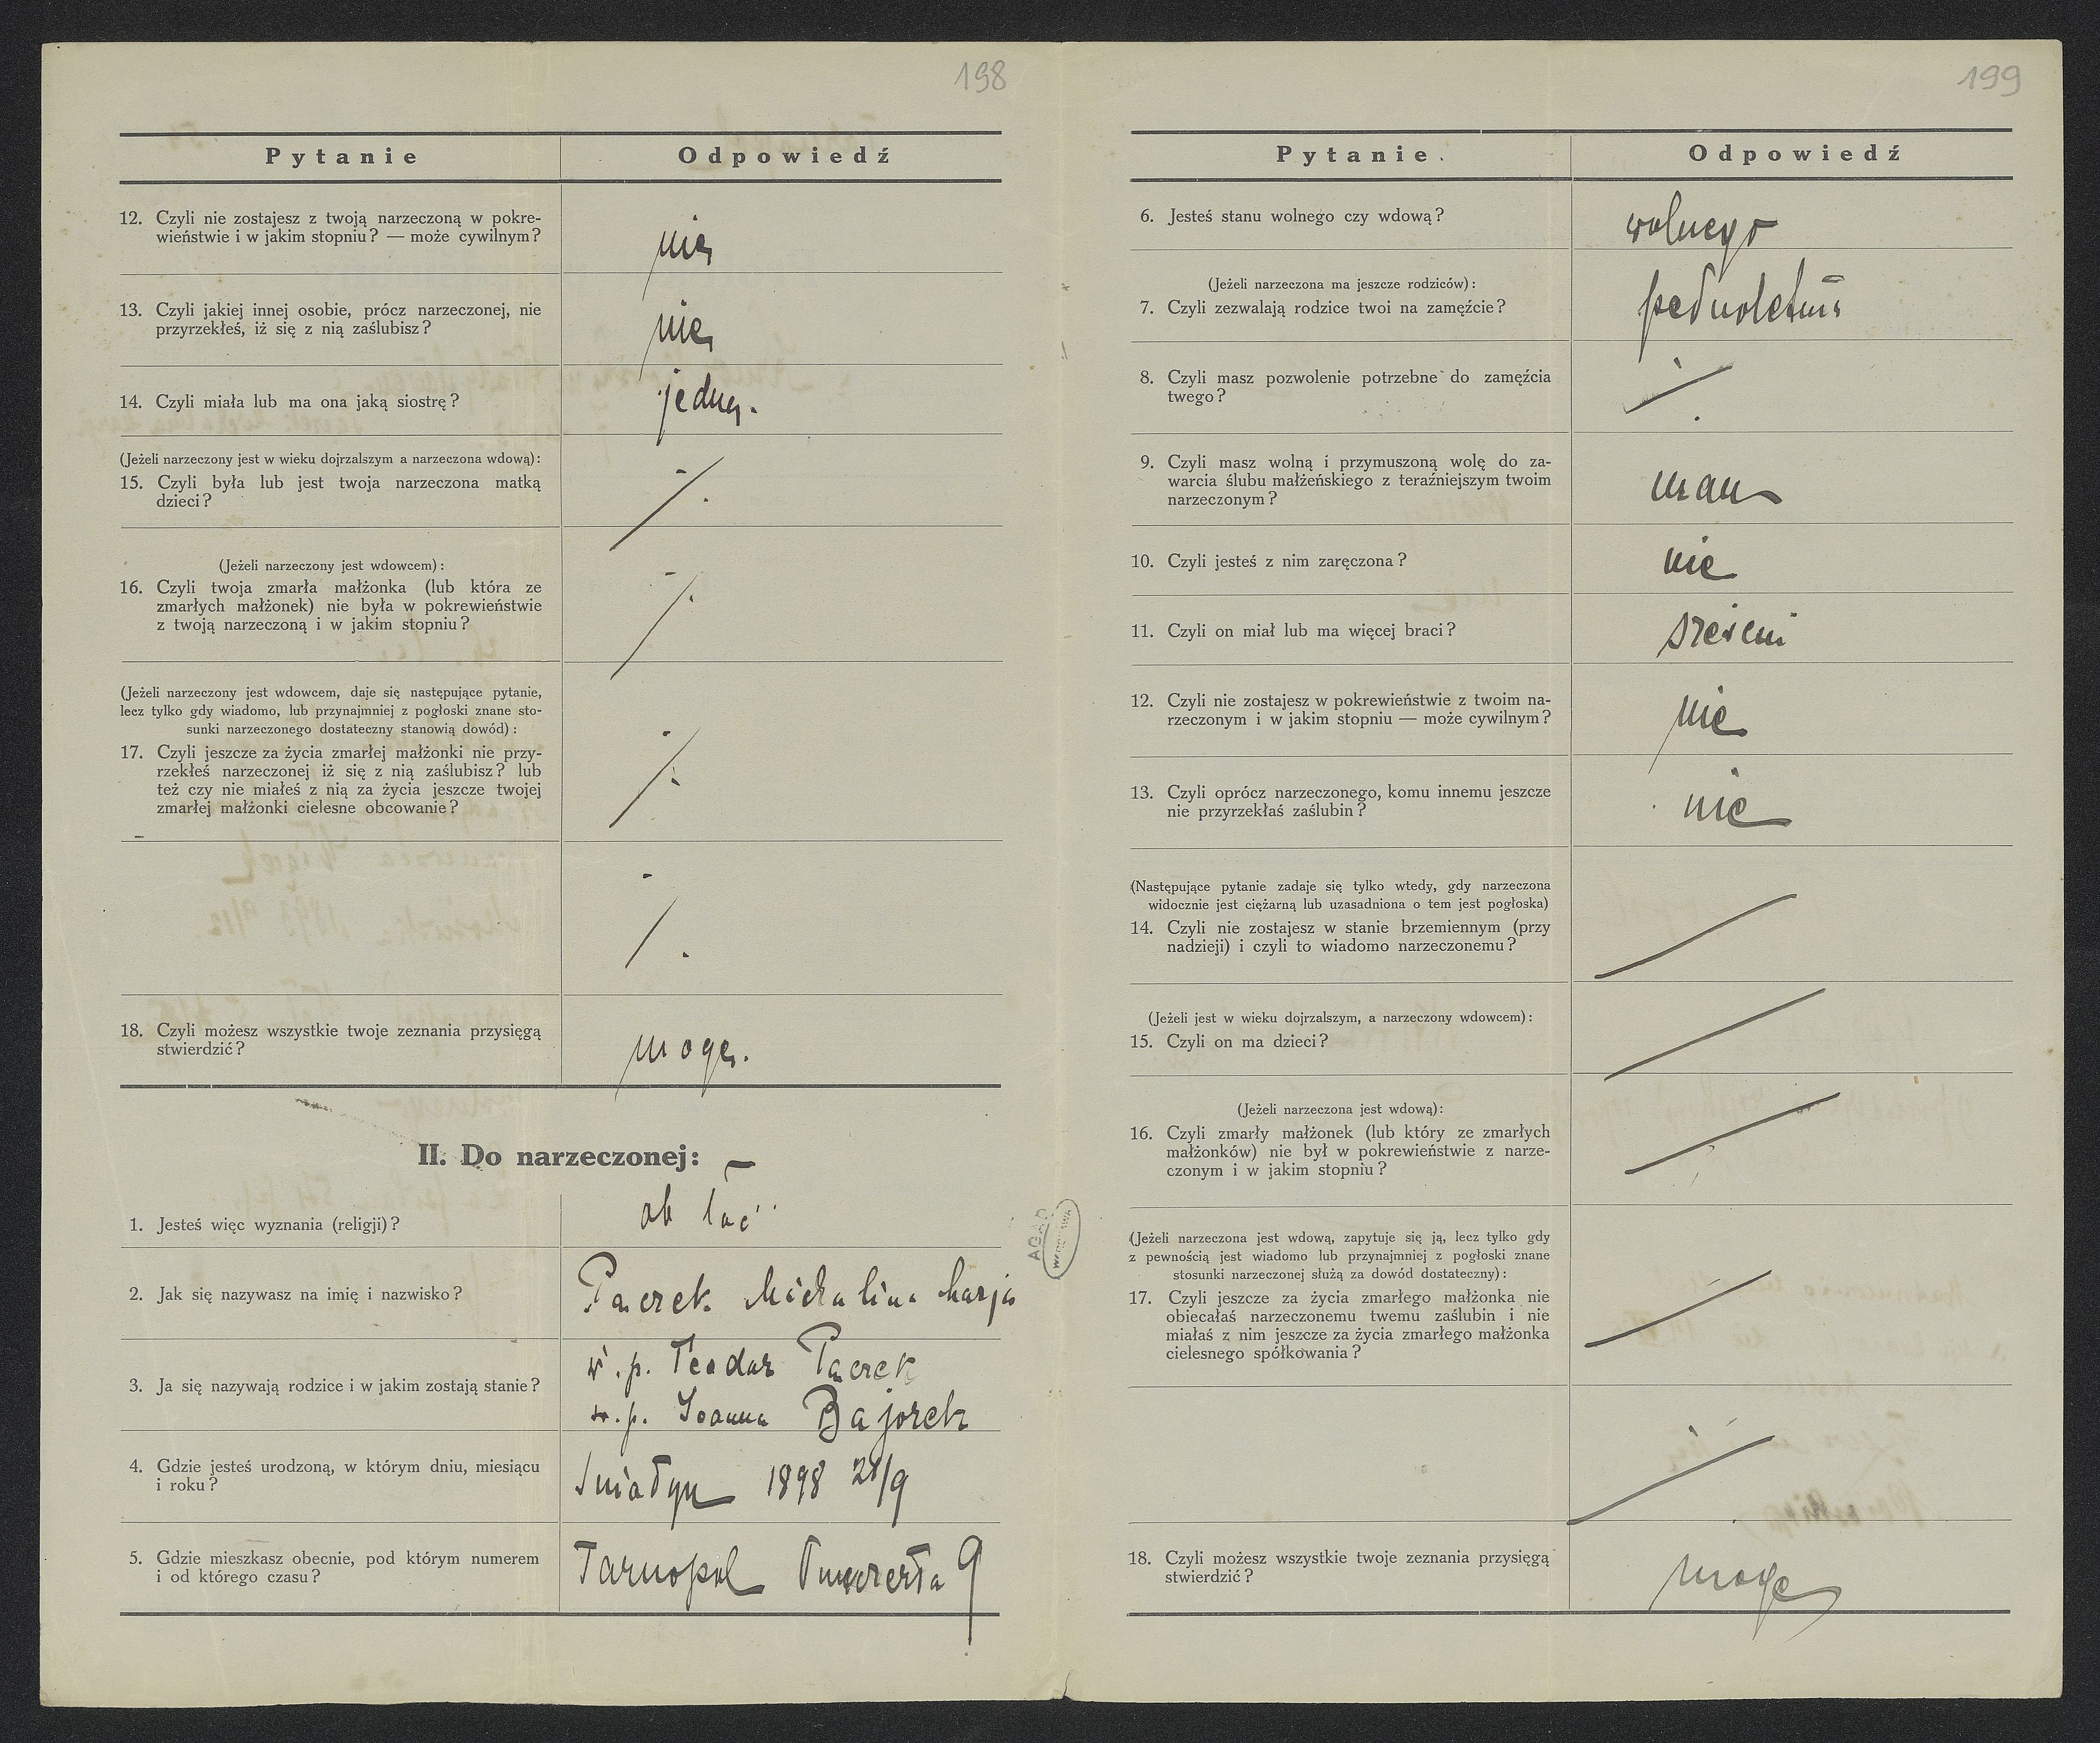 198
Pytanie
Odpowiedź
12. Czyli nie zostajesz z twoją narzeczoną w pokre-
wieństwie i w jakim stopniu? — może cywilnym?
nie
13. Czyli jakiej innej osobie, prócz narzeczonej, nie
przyrzekłeś, iż się z nią zaślubisz?
nie
14. Czyli miała lub ma ona jaką siostrę?
jedną.
(Jeżeli narzeczony jest w wieku dojrzalszym a narzeczona wdową):
15. Czyli była lub jest twoja narzeczona matką
dzieci?
(Jeżeli narzeczony jest wdowcem):
16. Czyli twoja zmarła małżonka (lub która ze
zmarłych małżonek) nie była w pokrewieństwie
z twoją narzeczoną i w jakim stopniu?
(Jeżeli narzeczony jest wdowcem, daje się następujące pytanie,
lecz tylko gdy wiadomo, lub przynajmniej z pogłoski znane sto-
sunki narzeczonego dostateczny stanowią dowód):
17. Czyli jeszcze za życia zmarłej małżonki nie przy-
rzekłeś narzeczonej iż się z nią zaślubisz? lub
też czy nie miałeś z nią za życia jeszcze twojej
zmarłej małżonki cielesne obcowanie?
18. Czyli możesz wszystkie twoje zeznania przysięgą
stwierdzić?
mogę.
II. Do narzeczonej:
1. Jesteś więc wyznania (religji)?
ob łać
2. Jak się nazywasz na imię i nazwisko?
Pacrek Michalina Marja
3. Ja się nazywają rodzice i w jakim zostają stanie?
ś. p. Teodor Pacrek
ś. p. Joanna Bajorek
4. Gdzie jesteś urodzoną, w którym dniu, miesiącu
i roku?
Śniatyn 1898 28/9
5. Gdzie mieszkasz obecnie, pod którym numerem
i od którego czasu?
Tarnopol 9
AGAD
WARSZAWA
199
Pytanie.
Odpowiedź
6. Jesteś stanu wolnego czy wdową?
wolnego
(Jeżeli narzeczona ma jeszcze rodziców):
7. Czyli zezwalają rodzice twoi na zamęźcie?
pełnoletnia
8. Czyli masz pozwolenie potrzebne do zamęźcia
twego?
9. Czyli masz wolną i przymuszoną wolę do za-
warcia ślubu małżeńskiego z teraźniejszym twoim
narzeczonym?
mam
10. Czyli jesteś z nim zaręczona?
nie
11. Czyli on miał lub ma więcej braci?
12. Czyli nie zostajesz w pokrewieństwie z twoim na-
rzeczonym i w jakim stopniu — może cywilnym?
nie
13. Czyli oprócz narzeczonego, komu innemu jeszcze
nie przyrzekłaś zaślubin?
nie
(Następujące pytanie zadaje się tylko wtedy, gdy narzeczona
widocznie jest ciężarną lub uzasadniona o tem jest pogłoska)
14. Czyli nie zostajesz w stanie brzemiennym (przy
nadzieji) i czyli to wiadomo narzeczonemu?
(Jeżeli jest w wieku dojrzalszym, a narzeczony wdowcem):
15. Czyli on ma dzieci?
(Jeżeli narzeczona jest wdową):
16. Czyli zmarły małżonek (lub który ze zmarłych
małżonków) nie był w pokrewieństwie z narze-
czonym i w jakim stopniu?
(Jeżeli narzeczona jest wdową, zapytuje się ją, lecz tylko gdy
z pewnością jest wiadomo lub przynajmniej z pogłoski znane
stosunki narzeczonej służą za dowód dostateczny):
17. Czyli jeszcze za życia zmarłego małżonka nie
obiecałaś narzeczonemu twemu zaślubin i nie
miałaś z nim jeszcze za życia zmarłego małżonka
cielesnego spółkowania?
18. Czyli możesz wszystkie twoje zeznania przysięgą
stwierdzić?
mogę